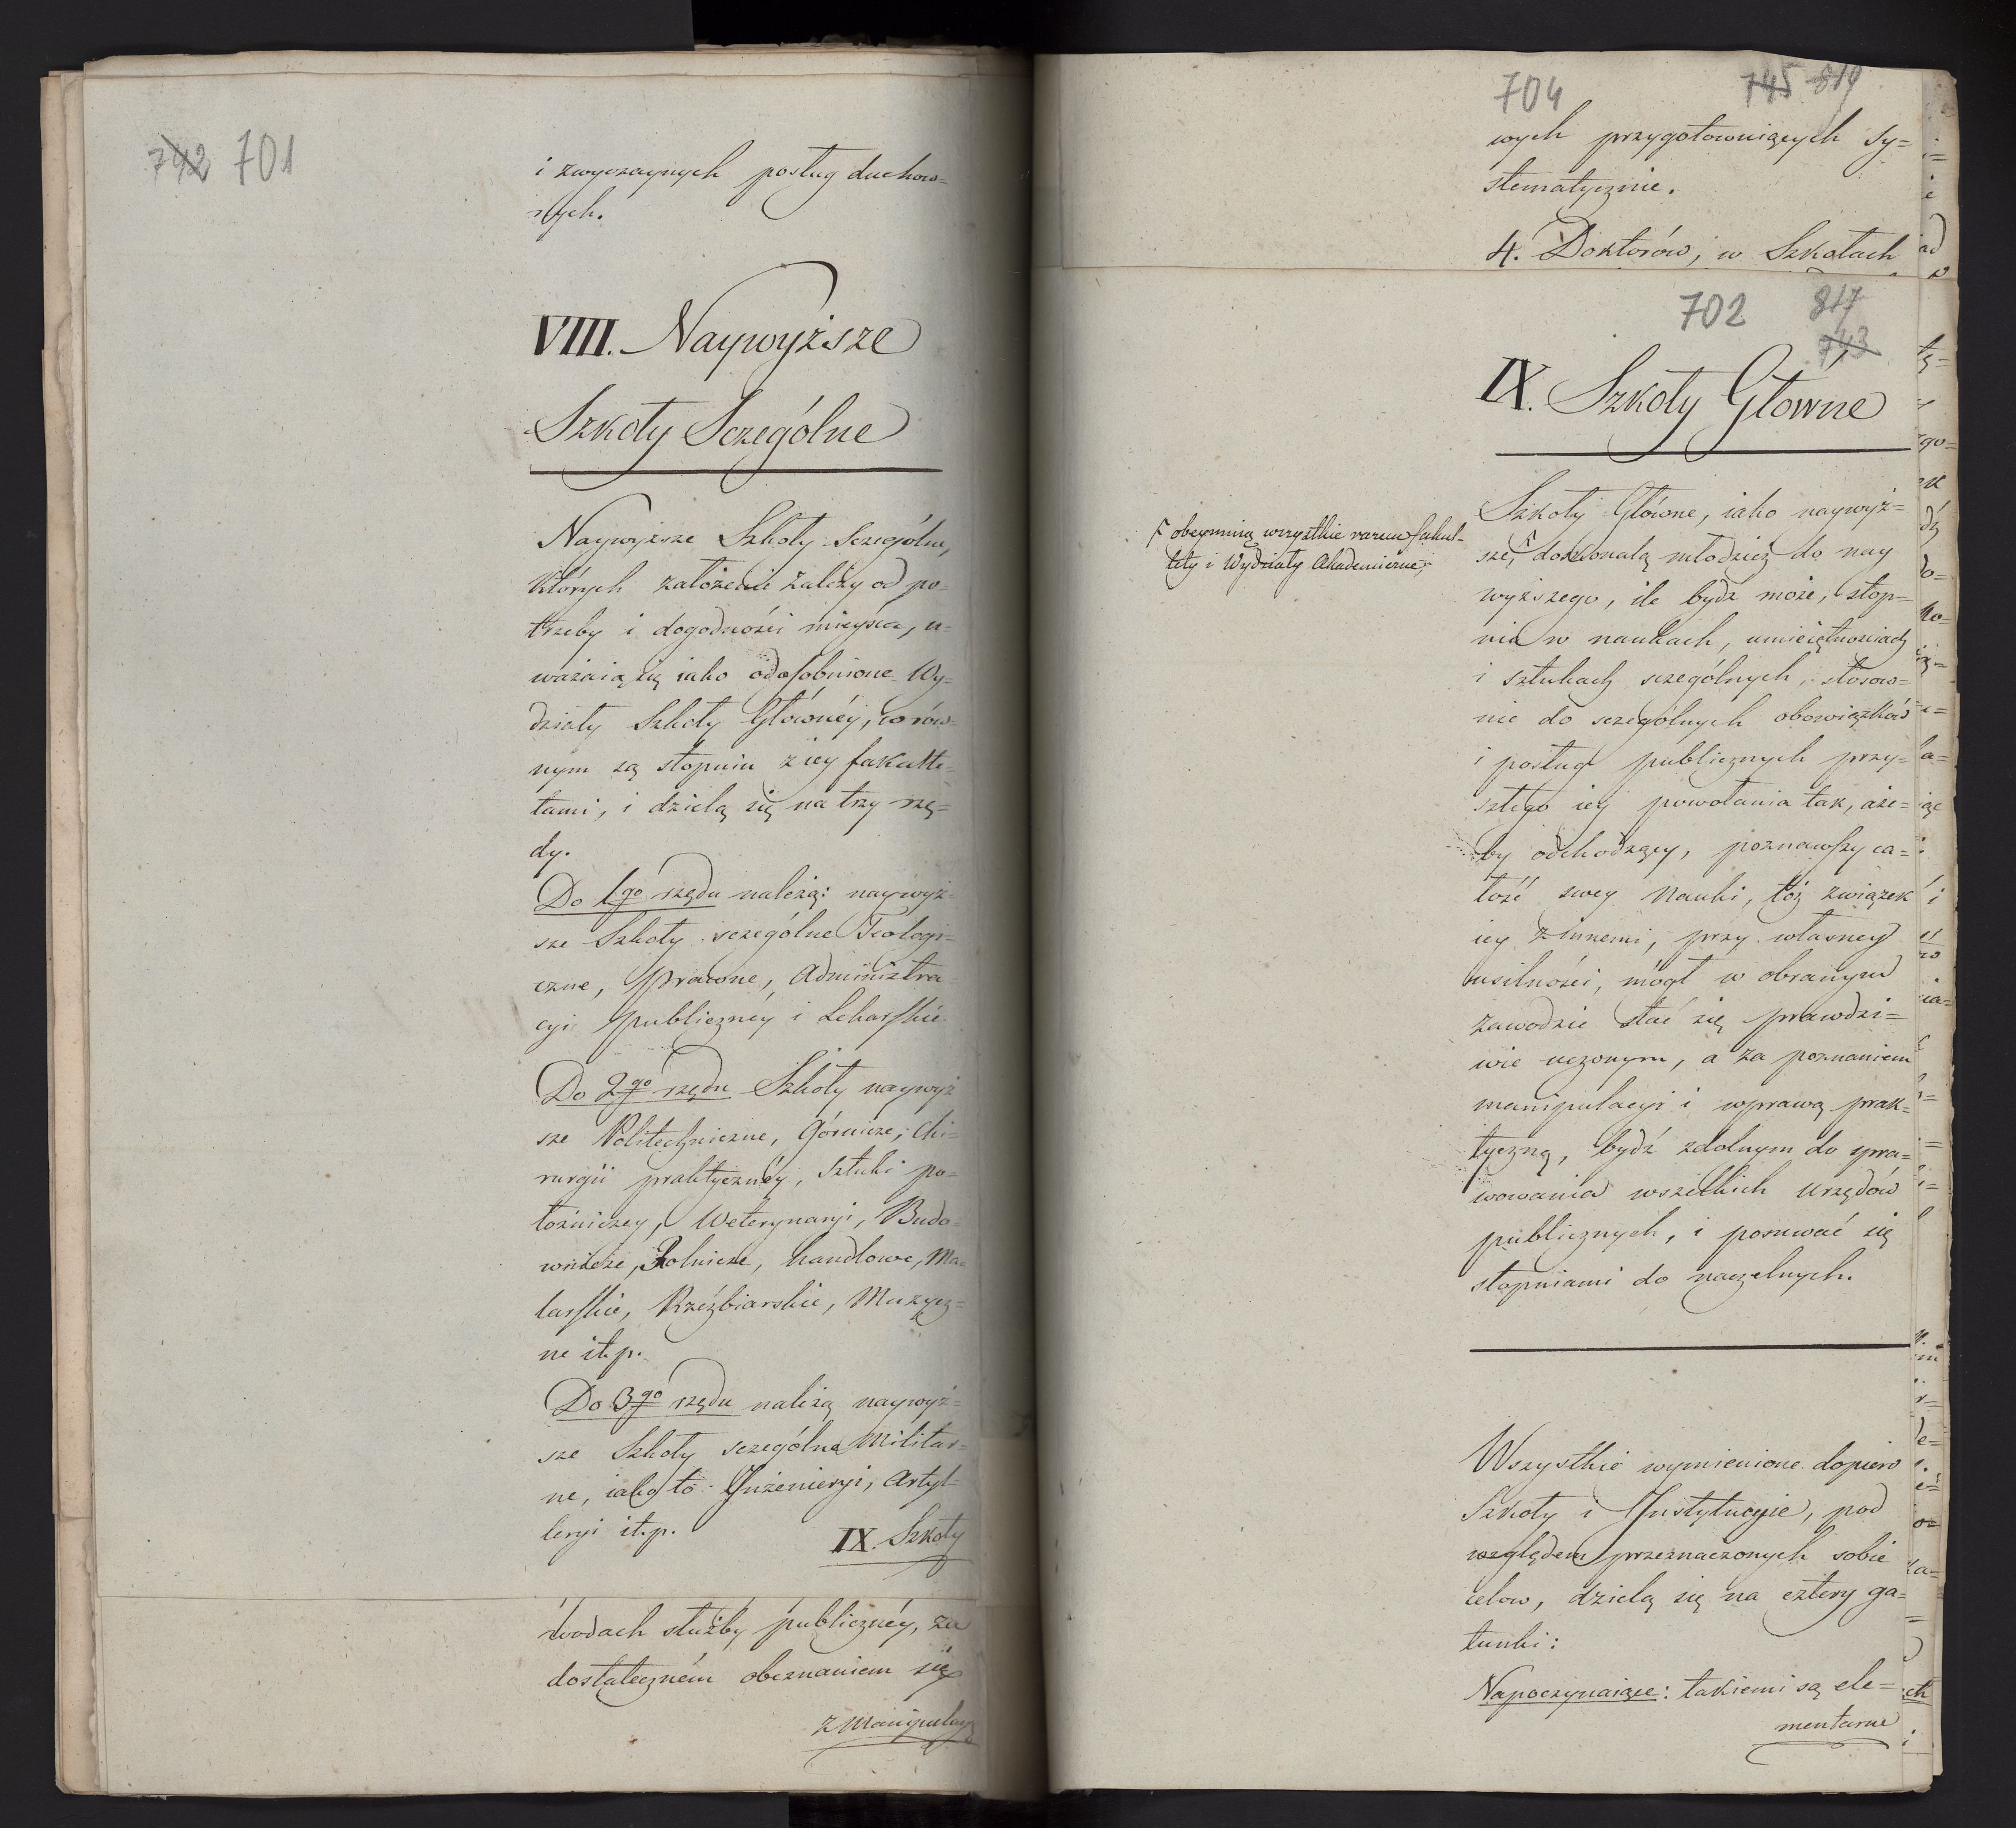 742 701
i zwyczaynych posług duchow=
nych.
VIII. Naywyższe
Szkoły Sczególne
Naywyższe Szkoły Sczególne,
których założenie zależy od po=
trzeby i dogodności mieysca, u=
ważaią się iako odosobnione Wy=
działy Szkoły Głównéy, w rów=
nym są stopniu z iey fakulte=
tami, i dzielą się na trzy rzę=
dy.
Do 1go rzędu należą: naywyż=
sze Szkoły sczególne Teologi=
czne, Prawne, Administra=
cyi publicznéy i Lekarskie.
Do 2go rzędu Szkoły naywyż
sze Politechniczne, Górnicze, Chi=
rurgii praktycznéy, Sztuki po=
łożniczey, Weterynaryi, Budo=
wnicze, Rolnicze, handlowe, Ma=
larskie, Rzeźbiarskie, Muzycz=
ne it.p.
Do 3go rzędu należą naywyż=
sze Szkoły sczególne Militar=
ne, iako to Inżenieryi, Artyl=
leryi it.p.
IX. Szkoły
wodach służby publicznéy, za
dostateczném obeznaniem się
z Manipulacyą
704 745 819
wych przygotowuiących Sy=
stematycznie.
4. Doktorów, w Szkołach
702 817
743
IX. Szkoły Główne
Szkoły Główne, iako naywyż=
sze, doskonalą młodzież do nay
wyższego, ile bydź może, stop=
nia w naukach, umieiętnościach
i sztukach sczególnych, stosow=
nie do sczególnych obowiązków
i posług publicznych przy=
szłego iey powołania tak, aże=
by odchodzący, poznawszy ca=
łość swey Nauki, tóż związek
iey z innemi, przy własney
usilności, mógł w obranym
zawodzie stać się prawdzi=
wie uczonym, a za poznaniem
manipulacyi i wprawą prak=
tyczną, bydź zdolnym do spra=
wowania wszelkich Urzędów
publicznych, i posuwać się
stopniami do naczelnych.
obeymuią wszystkie razem fakul=
tety i Wydziały Akademiczne,
Wszystkie wymienione dopiero
Szkoły i Instytucyie, pod
względem przeznaczonych sobie
celow, dzielą się na cztery ga=
tunki:
Napoczynaiące: takiemi są ele=
mentarne